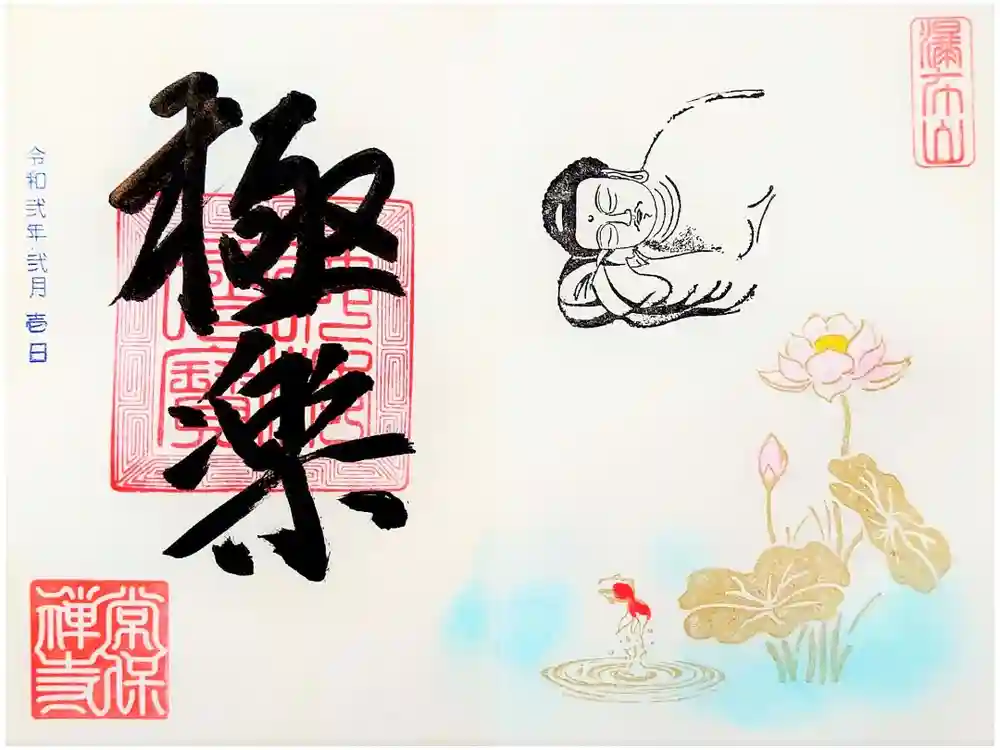 瀑布山
極楽
令和弐年.弐月 壱日
常保
禅寺